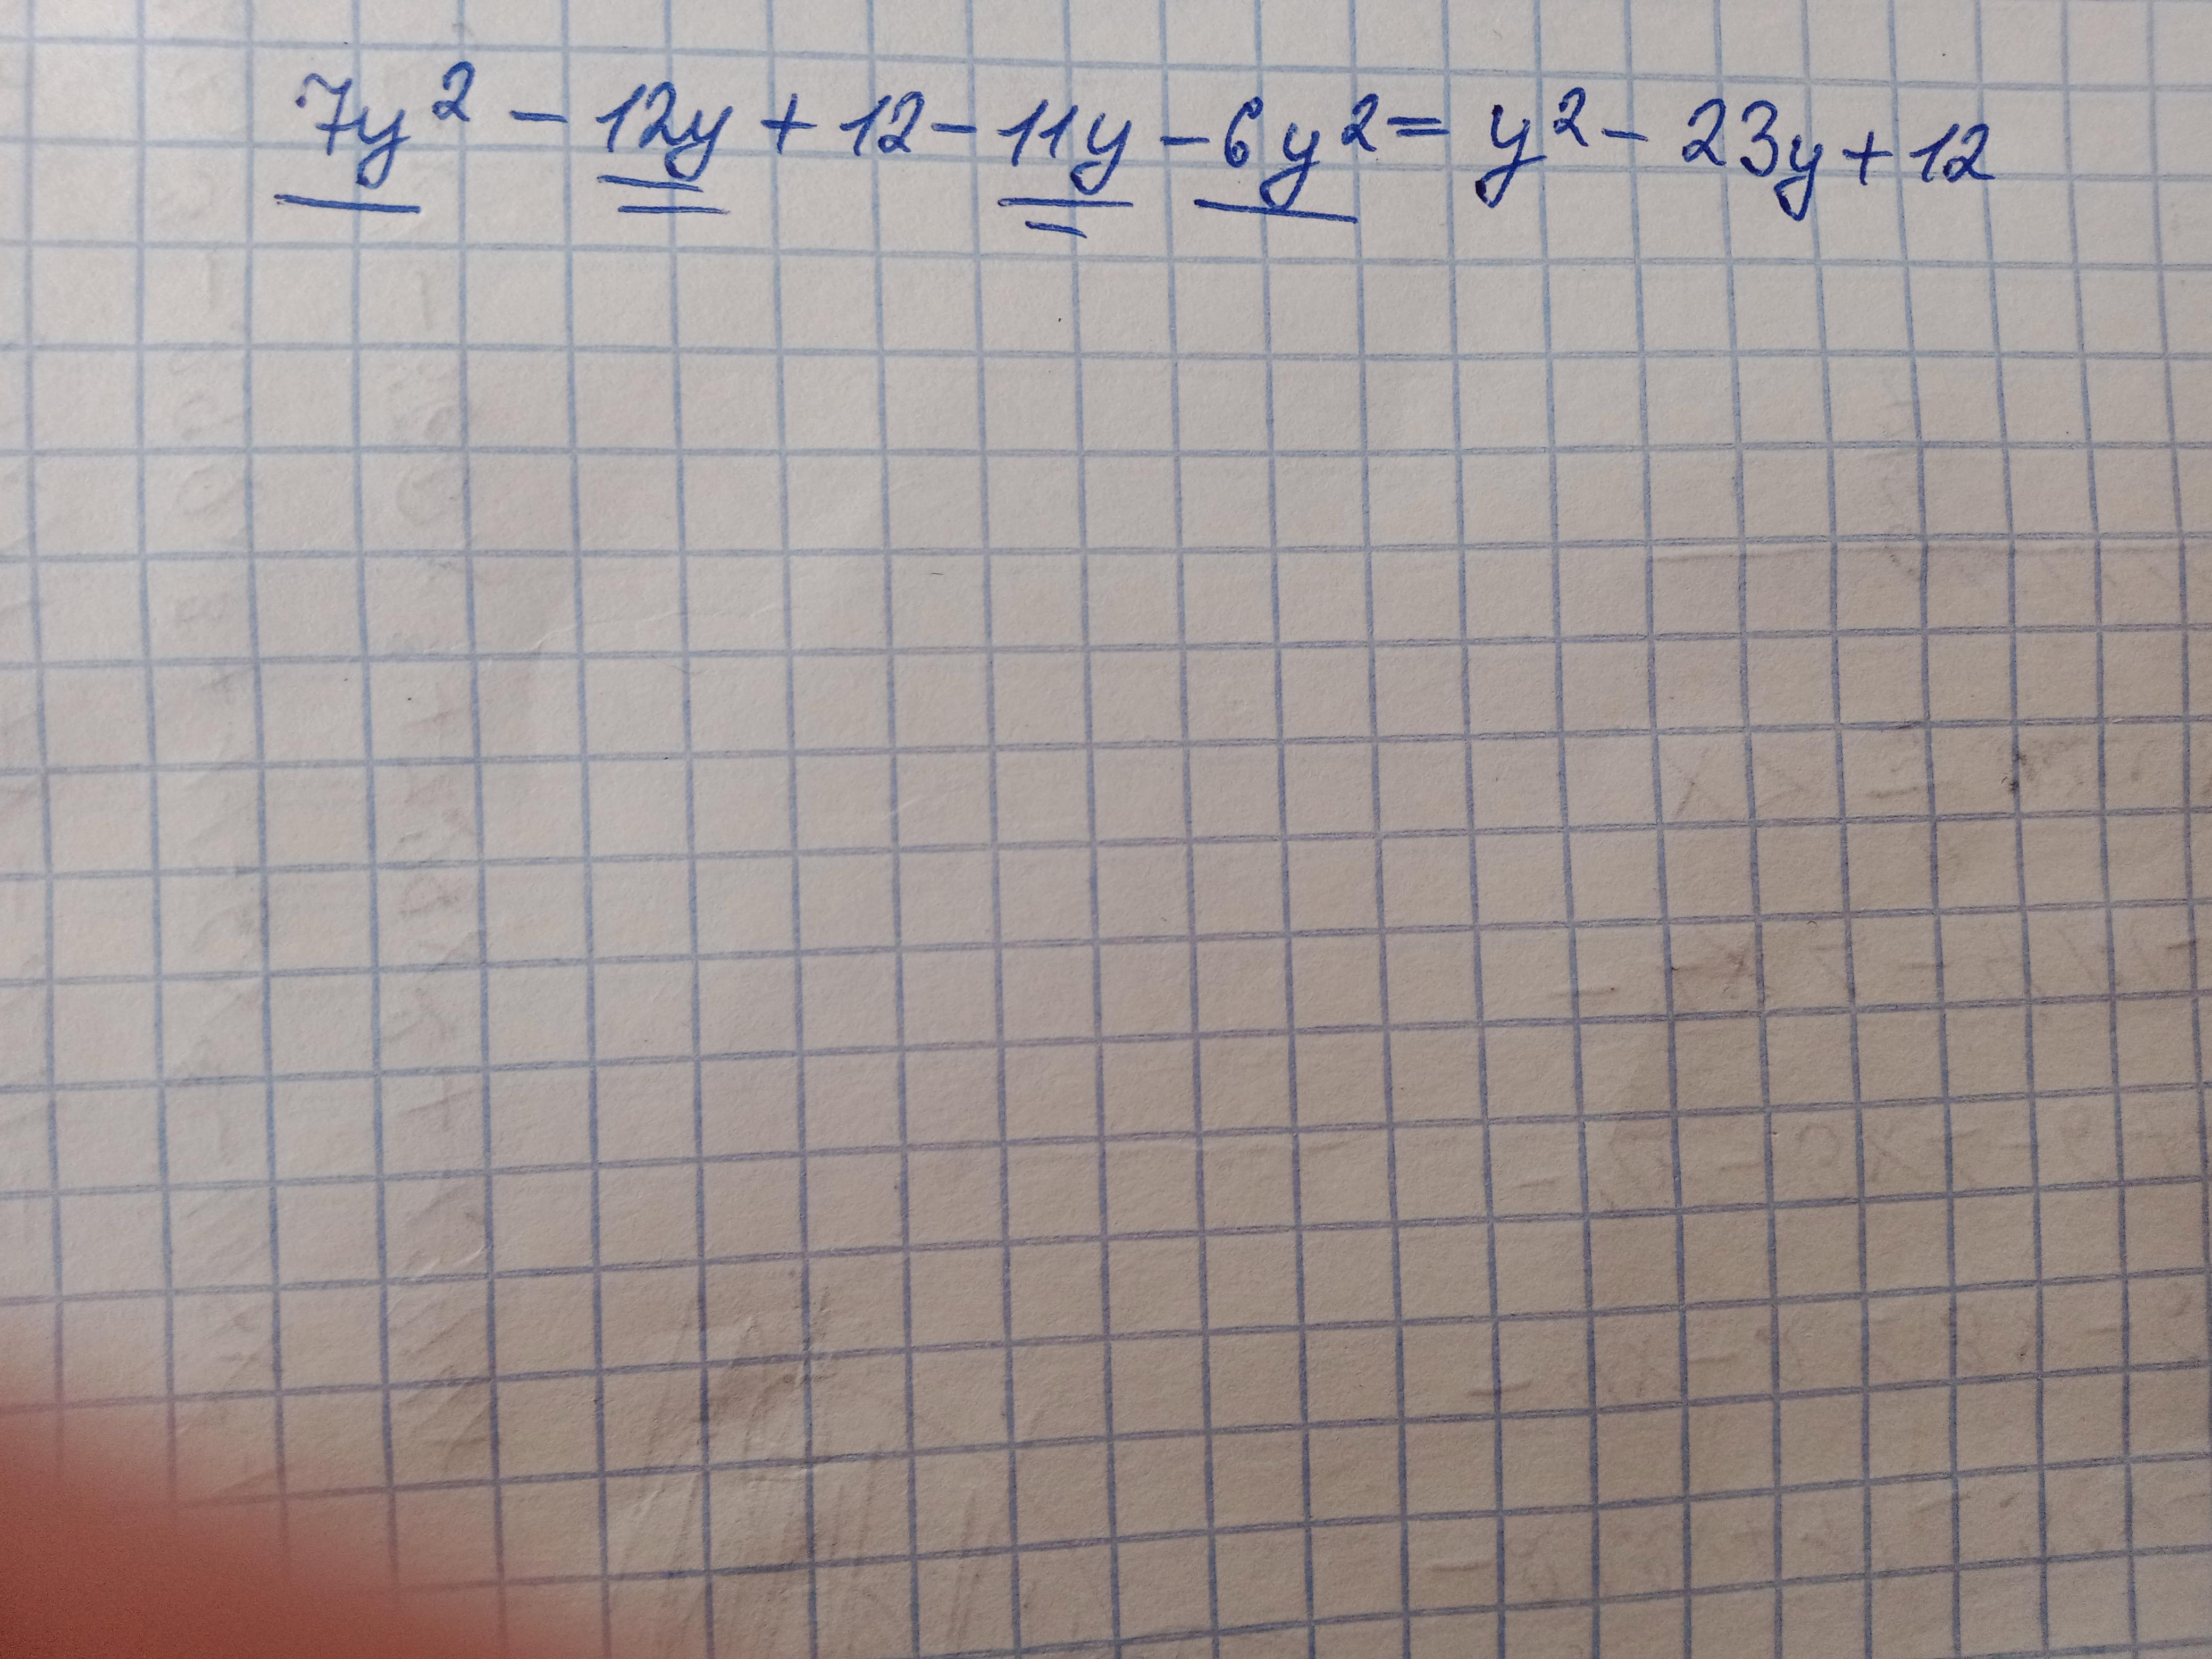 7y² - 12y + 12 - 11y - 6y² = y² - 23y + 12